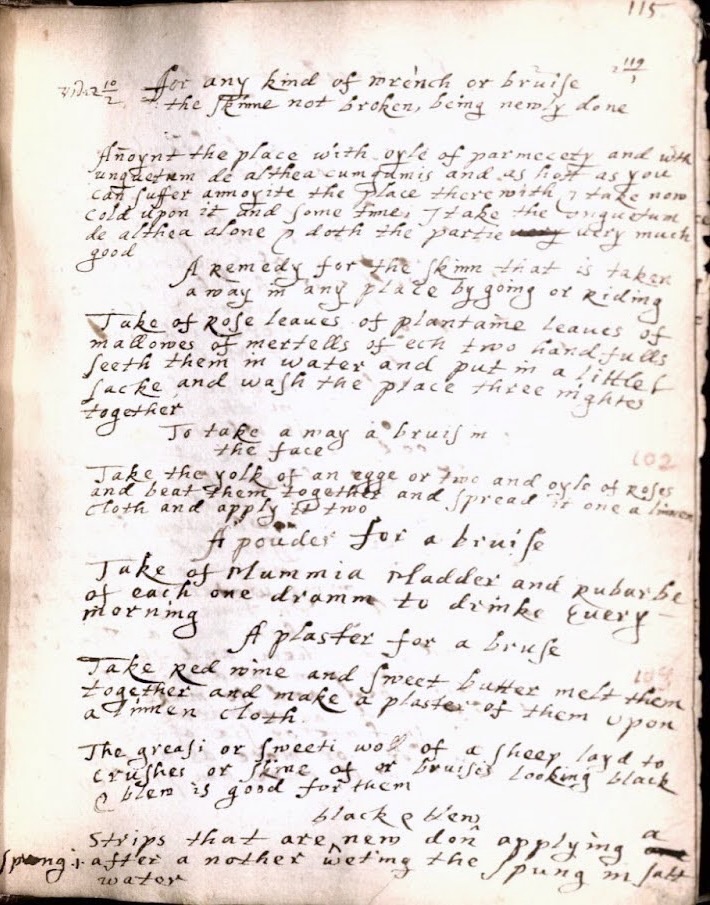 115
for any kind of wrench or bruise
the skinne not broken, being newly done
Anoynt the place with oyle of parmecety and with
unguetum de althea cumgumis and as hott as you
can suffer annoyite the place therewith & take now
cold upon it and some times I take the unguetum
de althea alone & doth the partie very very much
good
A remedy for the skinn that is taken
a way in any place by going or riding
Take of Rose leaves of plantane leaves of
mallowes of mertells of ech two handfulls
seeth them in water and put in a little
sacke and wash the place three nightes
together
To take a way a bruis in
the face
102
Take the yolk of an egge or two and oyle of Roses
and beat them together and spread it one a linnen
cloth and apply it two
A pouder for a bruise
Take of Mummia Madder and Rubarbe
of each one dramm to drinke every
morning
A plaster for a bruse
Take red wine and sweet butter melt them
together and make a plaster of them upon
a linnen cloth
The greasi or sweeti woll of a sheep layd to
crushes or skine of or bruises looking black
& blew is good for them
black & blew
Strips that are new don applying a
spung: after a nother weting the spung in salt
water